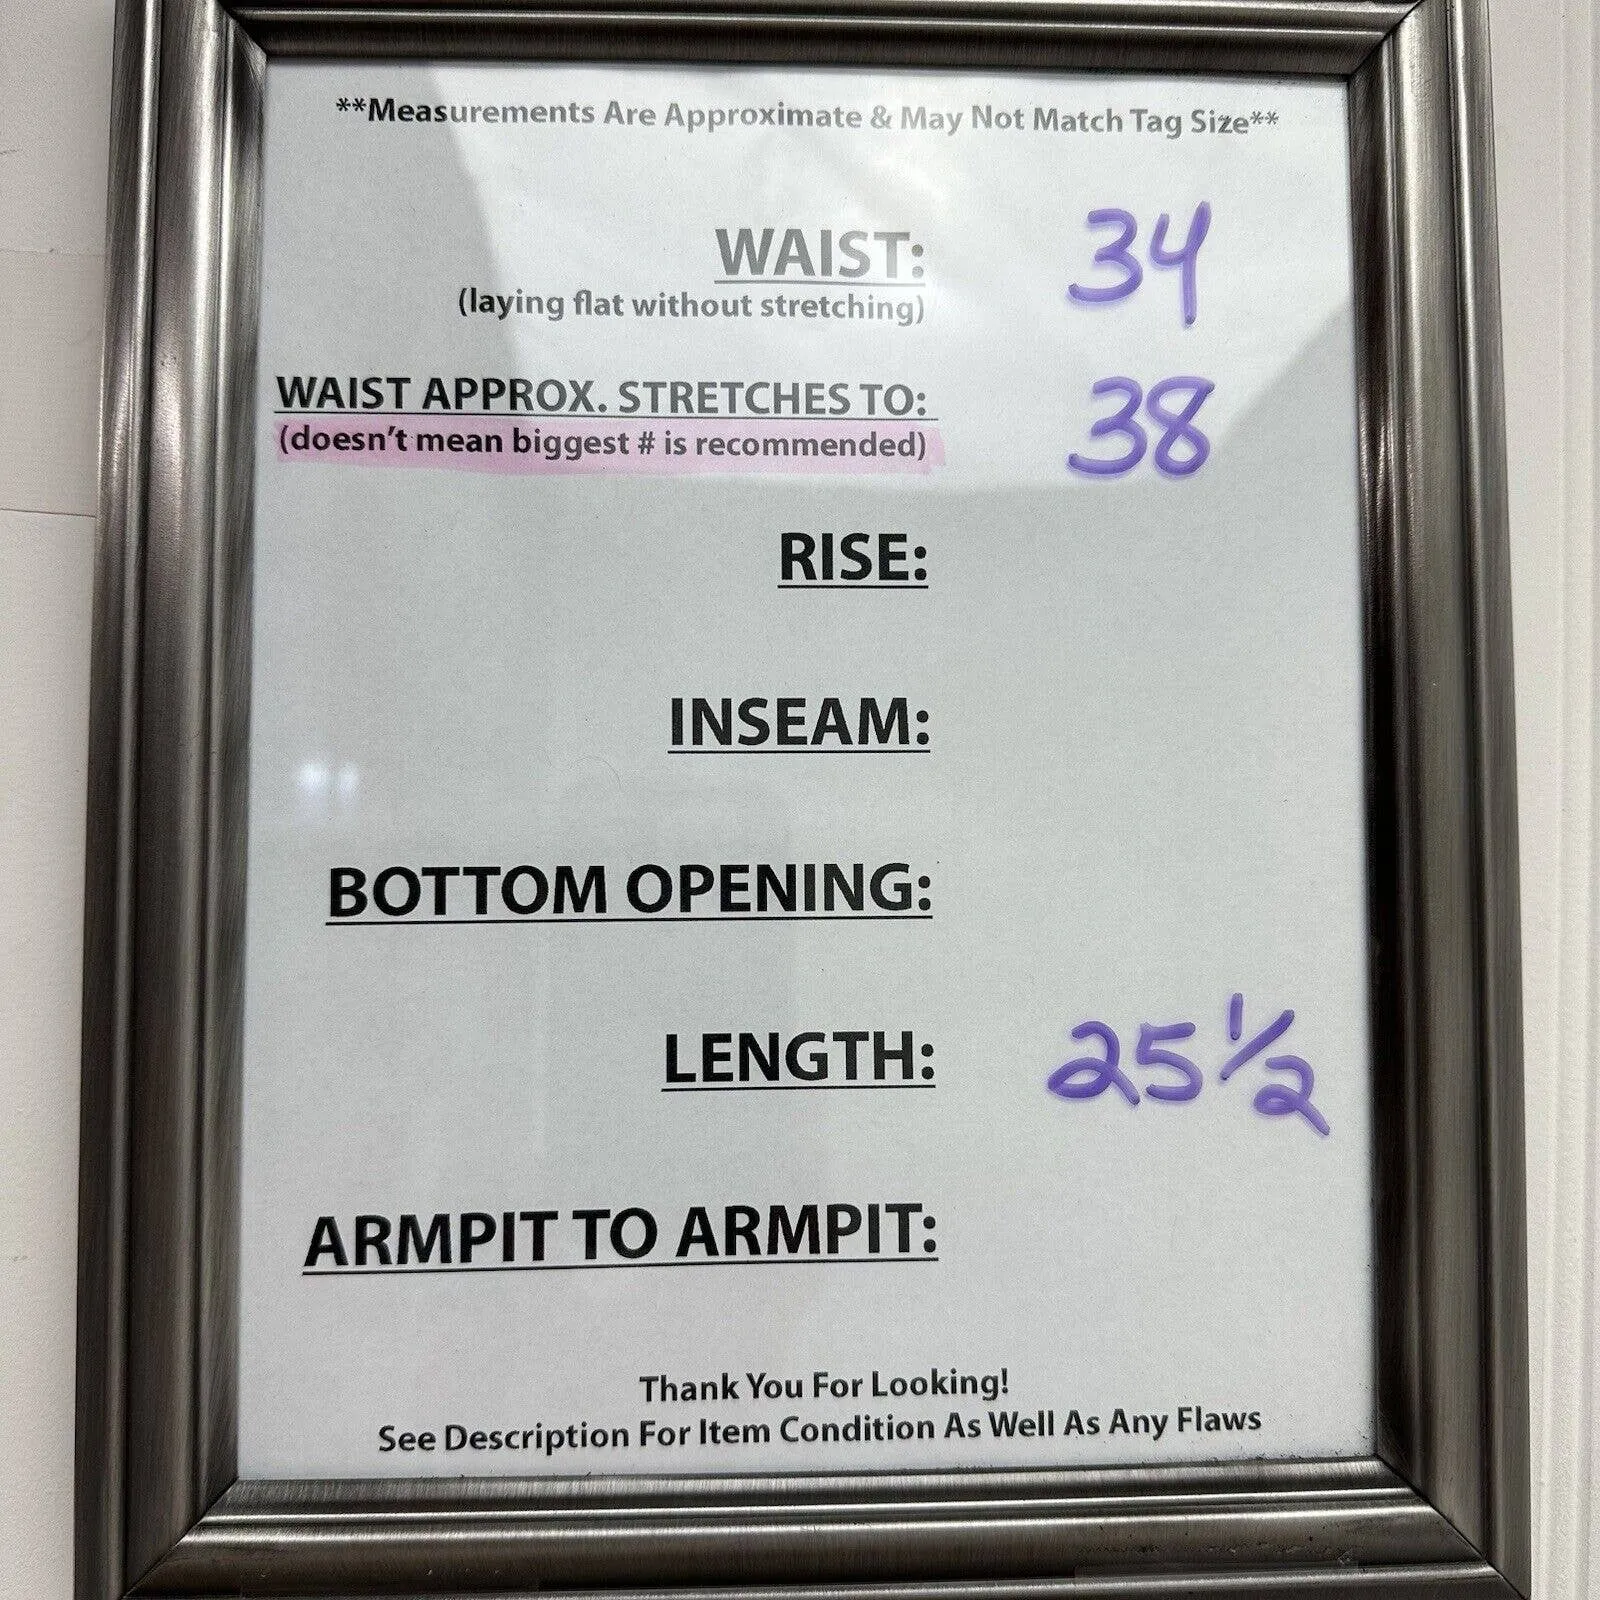 **Measurements Are Approximate & May Not Match Tag Size**
WAIST: 34
(laying flat without stretching)
WAIST APPROX. STRETCHES TO: 38
(doesn't mean biggest # is recommended)
RISE:
INSEAM:
BOTTOM OPENING:
LENGTH: 25 1/2
ARMPIT TO ARMPIT:
Thank You For Looking!
See Description For Item Condition As Well As Any Flaws